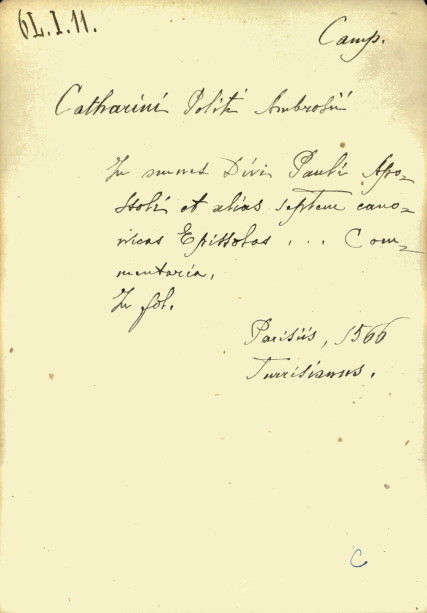 6L.I.11.
Camp.
Catharini Politi Ambrosii
In omnes Divi Pauli Apo-
stoli et alias septem cano-
nicas Epistolas ... Com-
mentaria.
In fol.
Parisiis, 1566
Turrisianus.
C